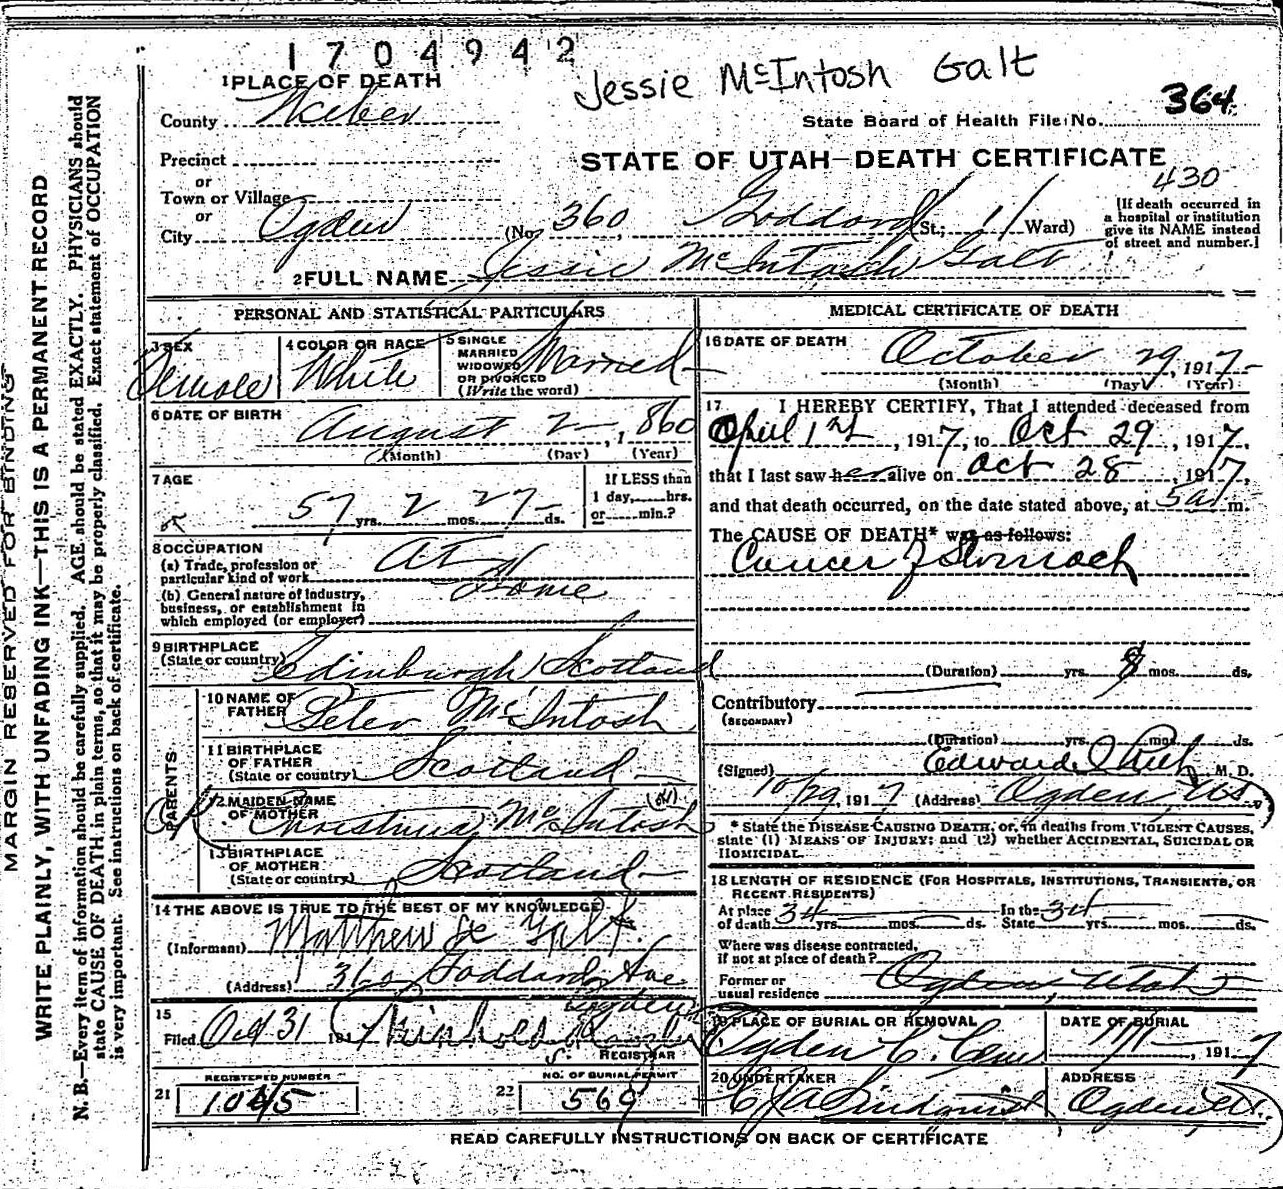 1704942
Jessie McIntosh Galt
364
1 PLACE OF DEATH
County Weber
State Board of Health File No.
Precinct
STATE OF UTAH—DEATH CERTIFICATE
or
430
Town or Village
or
City Ogden (No. 360, Goddard St.; 1 Ward)
[If death occurred in a hospital or institution give its NAME instead of street and number.]
2 FULL NAME Jessie McIntosh Galt
PERSONAL AND STATISTICAL PARTICULARS
3 SEX Female
4 COLOR OR RACE White
5 SINGLE MARRIED WIDOWED OR DIVORCED (Write the word) Married
6 DATE OF BIRTH August 2, 1860
(Month) (Day) (Year)
7 AGE
57 yrs. 2 mos. 27 ds.
If LESS than
1 day,.....hrs.
or......min.?
8 OCCUPATION
(a) Trade, profession or
particular kind of work At Home
(b) General nature of industry,
business, or establishment in
which employed (or employer)
9 BIRTHPLACE
(State or country) Edinburgh Scotland
PARENTS
10 NAME OF FATHER Peter McIntosh
11 BIRTHPLACE OF FATHER
(State or country) Scotland
12 MAIDEN NAME OF MOTHER Christina McIntosh (ok)
13 BIRTHPLACE OF MOTHER
(State or country) Scotland
14 THE ABOVE IS TRUE TO THE BEST OF MY KNOWLEDGE
(Informant) Matthew Galt
(Address) 360 Goddard Ave
Ogden
15
Filed Oct 31 191
REGISTRAR
21 REGISTERED NUMBER
22 NO. OF BURIAL PERMIT 569
MEDICAL CERTIFICATE OF DEATH
16 DATE OF DEATH October 29, 1917
(Month) (Day) (Year)
17 I HEREBY CERTIFY, That I attended deceased from
April 1st, 1917, to Oct 29, 1917,
that I last saw her alive on Oct 28, 1917,
and that death occurred, on the date stated above, at 5 a m.
The CAUSE OF DEATH* was as follows:
Cancer of Stomach
(Duration) yrs. 8 mos. ds.
Contributory
(SECONDARY)
(Duration) yrs. mos. ds.
(Signed) Edward M. D.
10/29 1917 (Address) Ogden
* State the DISEASE CAUSING DEATH, or, in deaths from VIOLENT CAUSES,
state (1) MEANS OF INJURY; and (2) whether ACCIDENTAL, SUICIDAL OR
HOMICIDAL.
18 LENGTH OF RESIDENCE (FOR HOSPITALS, INSTITUTIONS, TRANSIENTS, OR
RECENT RESIDENTS)
At place of death 34 yrs. mos. ds. In the State 34 yrs. mos. ds.
Where was disease contracted,
if not at place of death?
Former or
usual residence Ogden, Utah
19 PLACE OF BURIAL OR REMOVAL Ogden C. Cem
DATE OF BURIAL 11/1, 1917
20 UNDERTAKER Lindquist
ADDRESS Ogden
READ CAREFULLY INSTRUCTIONS ON BACK OF CERTIFICATE
MARGIN RESERVED FOR BINDING
WRITE PLAINLY, WITH UNFADING INK—THIS IS A PERMANENT RECORD
N. B.—Every item of information should be carefully supplied. AGE should be stated EXACTLY. PHYSICIANS should
state CAUSE OF DEATH in plain terms, so that it may be properly classified. Exact statement of OCCUPATION
is very important. See instructions on back of certificate.